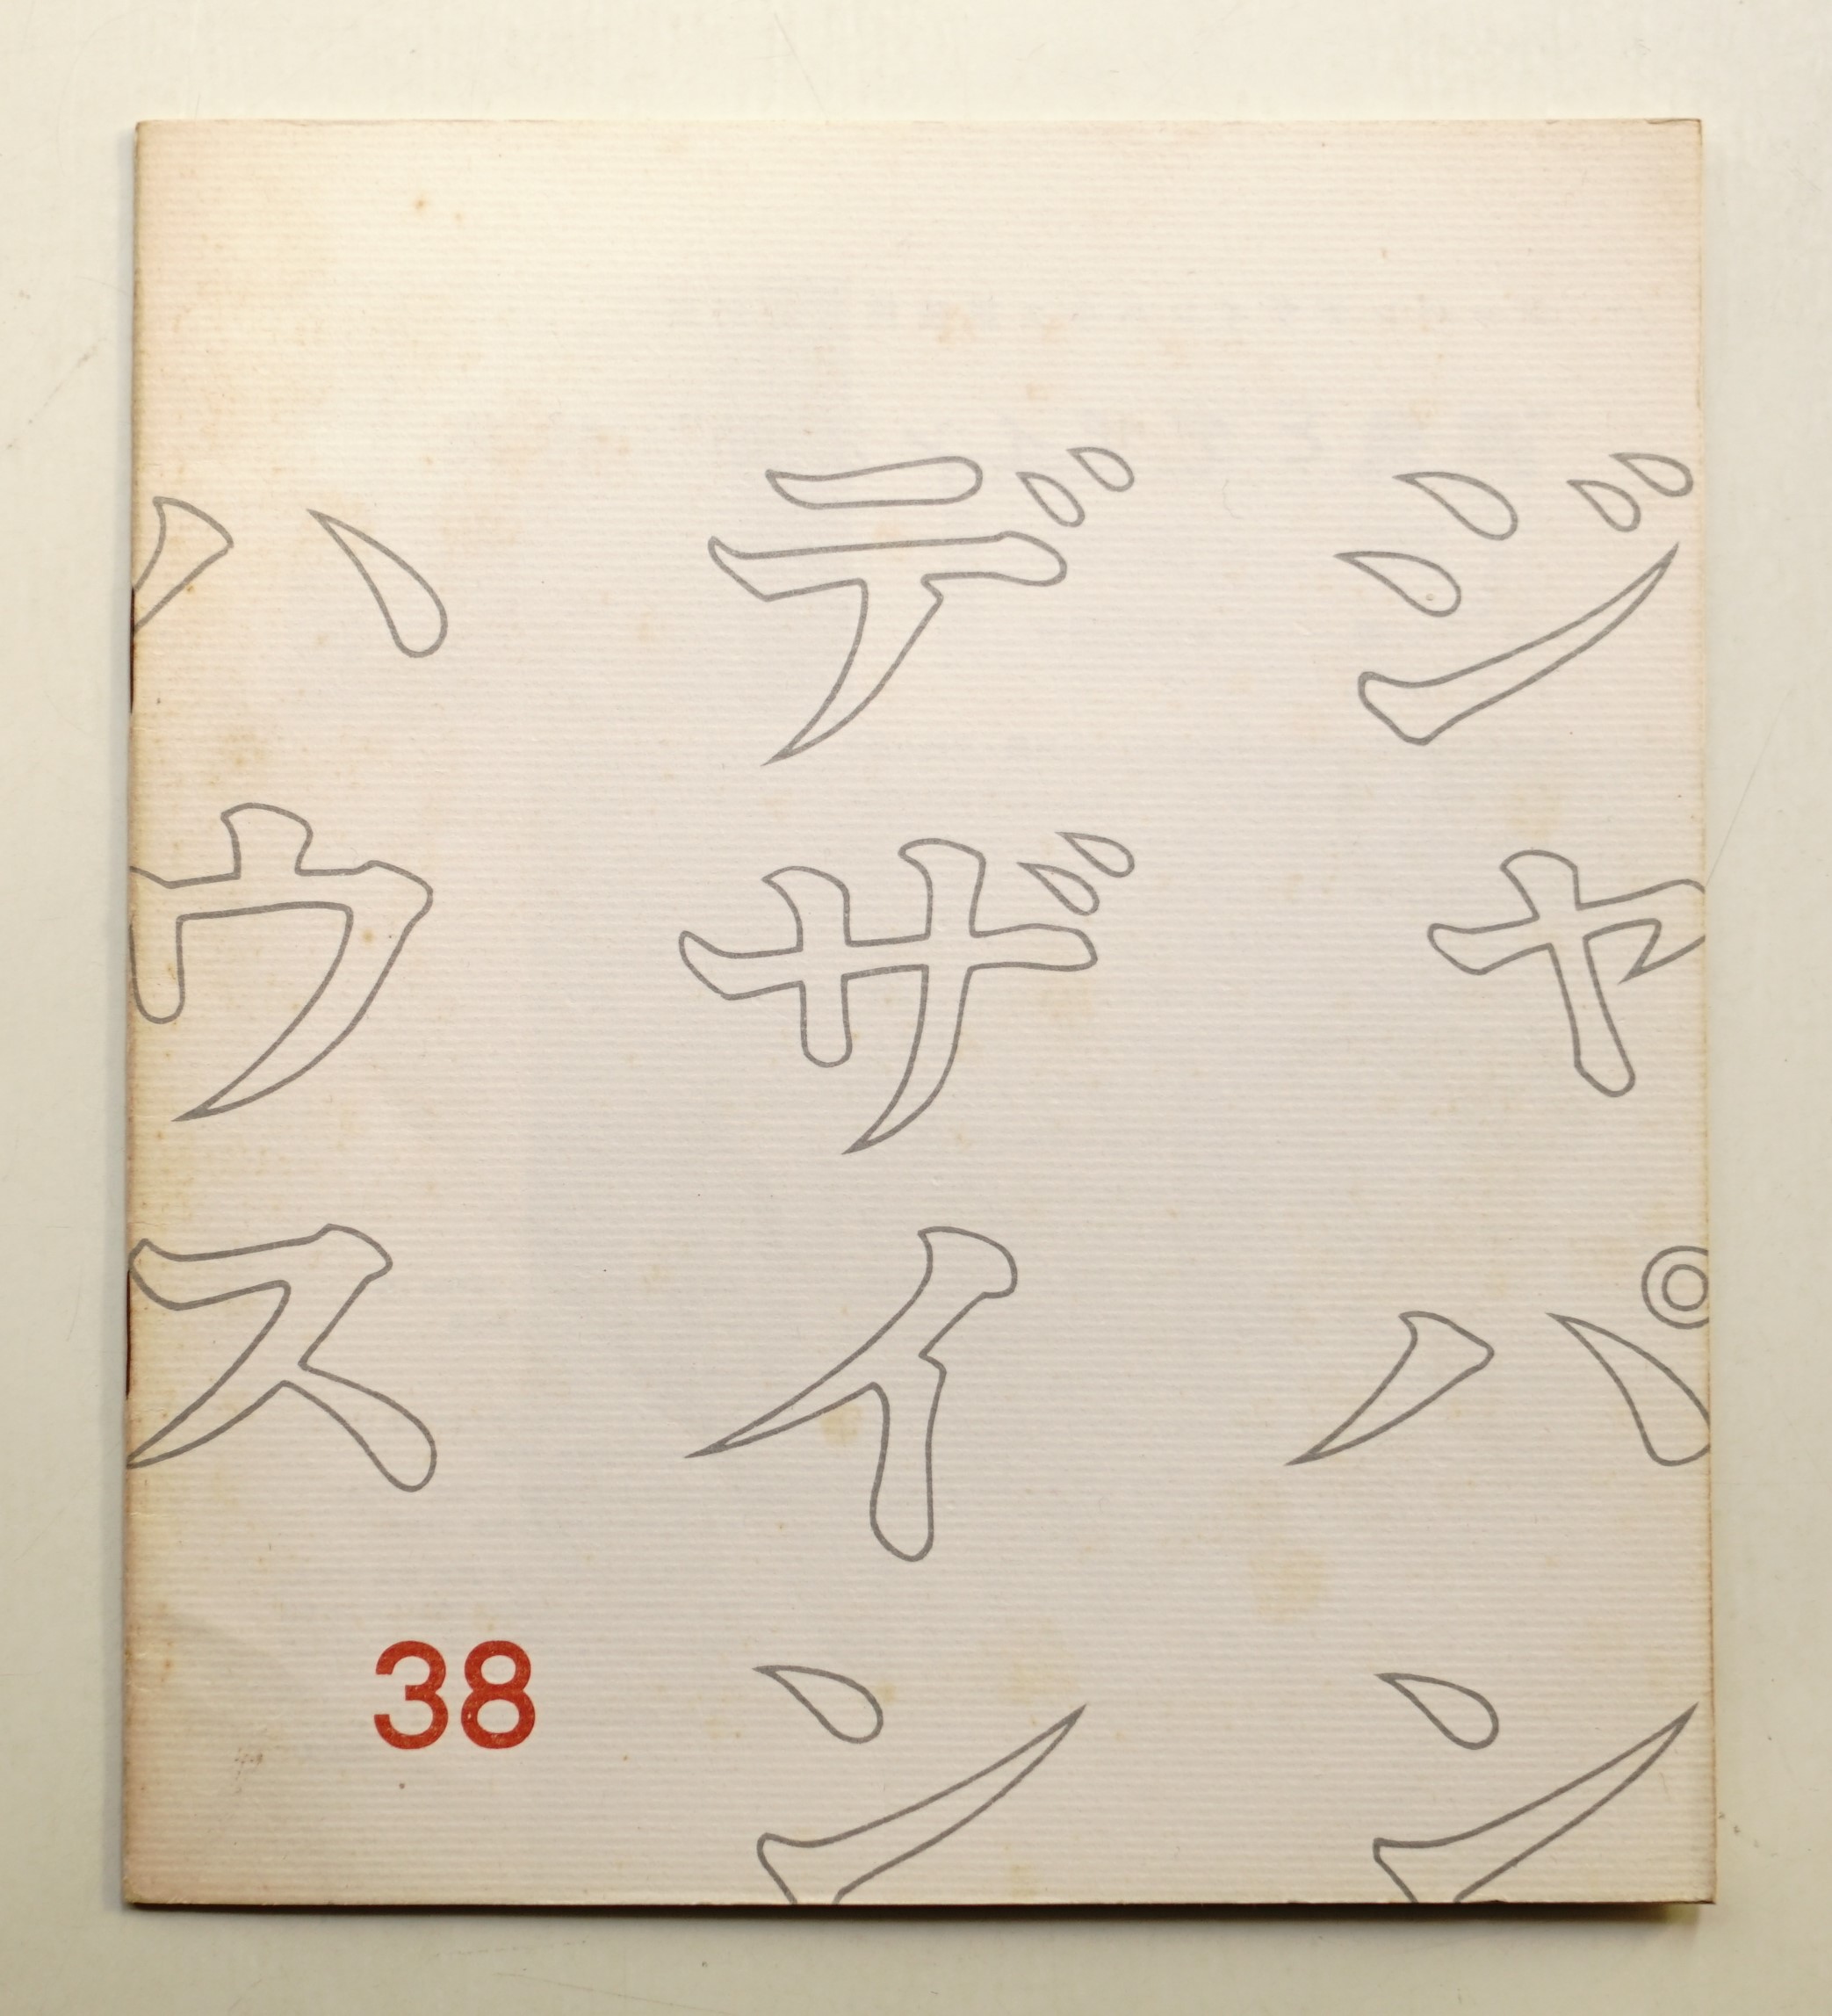 ジャパン
デザイン
ハウス
38